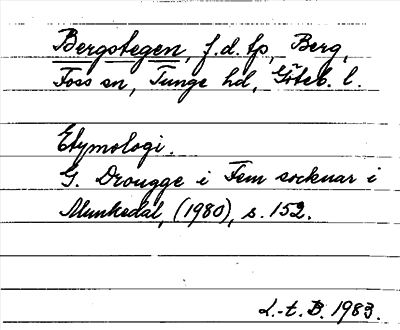 Bergstegen, f.d. tp, Berg,
Foss sn, Tunge hd, Göteb. l.
Etymologi.
G. Drougge i Fem socknar i
Munkedal, (1980), s. 152.
L.-t. B. 1983.